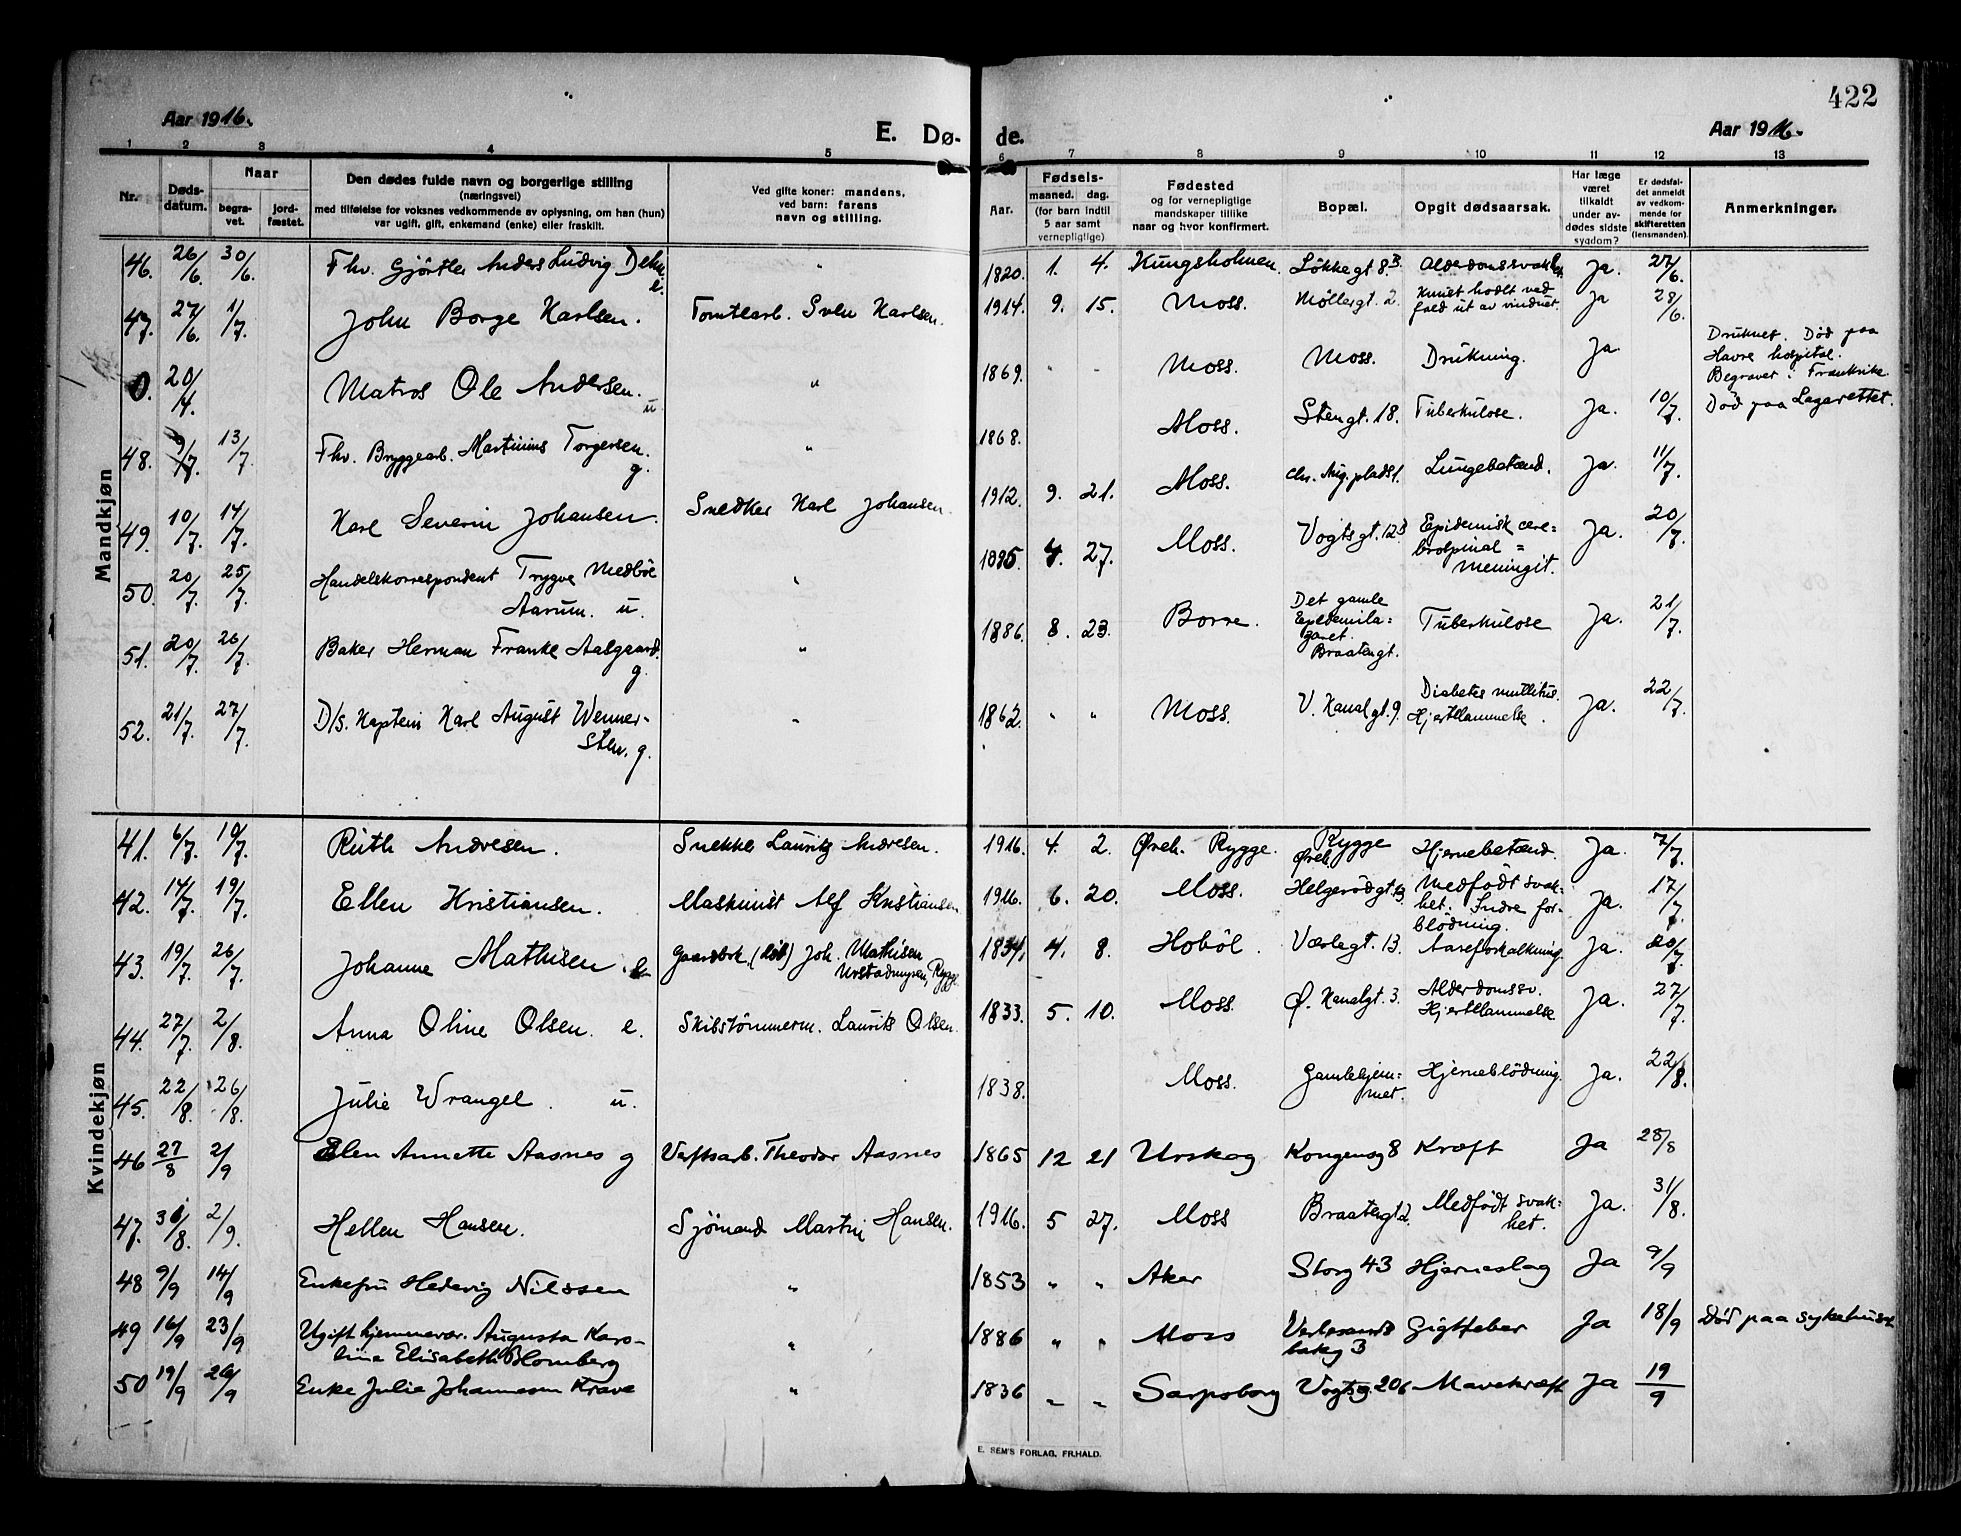 422
Aar 1916.
E. Dø- de.
Aar 1916.
1 2 3 4 5 6 7 8 9 10 11 12 13
Nr.
Døds-
datum.
Naar
begra-
vet.
jord-
fæstet.
Den dødes fulde navn og borgerlige stilling
(næringsvei)
med tilføielse for voksnes vedkommende av oplysning, om han (hun)
var ugift, gift, enkemand (enke) eller fraskilt.
Ved gifte koner: mandens,
ved barn: farens
navn og stilling.
Aar.
Fødsels-
maaned. dag.
(for barn indtil
5 aar samt
vernepligtige)
Fødested
og for vernepligtige
mandskaper tillike
naar og hvor konfirmert.
Bopæl.
Opgit dødsaarsak.
Har læge
været
tilkaldt
under av-
dødes sidste
sygdom?
Er dødsfal-
det anmeldt
av vedkom-
mende for
skifteretten
(lensmanden).
Anmerkninger.
Mandkjøn
46. 26/6. 30/6. Fhv. Gjørtler Anders Ludvig Dehn. e. " 1820. 1. 4. Kungsholmen. Løkkegt 8.B Alderdomssvakh. Ja. 27/6.
47. 27/6. 1/7. John Borge Karlsen. Tomtearb. Sven Karlsen. 1914. 9. 15. Moss. Møllergt. 2. Knust hodet ved
fald ut av vinduet. Ja 28/6.
0. 20/4. Matros Ole Andersen. u " 1869. " - Moss. Moss. Drukning. Ja Druknet. Død paa
Havre hospital.
Begravet i Frankrike.
48. 9/7. 13/7. Fhv. Bryggearb. Martinius Torgersen. g. " 1868. Moss. Stengt. 18. Tuberkulose. Ja. 10/7. Død paa Lazarettet.
49. 10/7. 14/7. Karl Severin Johansen. Snedker Karl Johansen. 1912. 9. 21. Moss. Chr. Aug. plads 1. Lungebetænd. Ja. 11/7.
50. 20/7. 25/7. Handelskorrespondent Trygve Medbøe
Aarum. u. 1895. 4. 27. Moss. Vogts gt. 12B Epidemisk cere=
brospinal =
meningit. Ja. 20/7.
51. 20/7. 26/7. Baker Herman Franke Aalgaard.
g. " 1886. 8. 23. Borre. Det gamle
Epidemila=
zaret.
Braatengt. Tuberkulose Ja. 21/7.
52. 21/7. 27/7. D/S. Kaptein Karl August Wenner-
sten. g. " 1862. " " Moss. V. Kanalgt. 9. Diabetes mellitus.
Hjertelammelse. Ja. 22/7.
Kvindekjøn
41. 6/7. 10/7. Ruth Andresen. Snekke Lauritz Andresen. 1916. 4. 2. Øreh. Rygge. Rygge
Øreh. Hjernebetænd. Ja. 7/7.
42. 14/7. 19/7. Ellen Kristiansen. Maskinist Alf Kristiansen 1916. 6. 20. Moss. Helgerødgt. 13. Medfødt svak-
het. Indre for-
blødning. Ja. 17/7.
43. 19/7. 26/7. Johanne Mathisen. e Gaardbrk. (død) Joh. Mathisen
Urstadmyren, Rygge 1834. 4. 8. Hobøl. Værlegt. 13. Aareforkalkning. Ja. 20/7.
44. 27/7. 2/8. Anna Oline Olsen. e. Skibstømmerm. Laurits Olsen. 1833. 5. 10. Moss. Ø. Kanalgt. 3. Alderdomssv.
Hjertelammelse Ja. 27/7.
45. 22/8. 26/8. Julie Wrangel. u. 1838. Moss. Gamlehjem=
met. Hjerneblødning. Ja. 22/8.
46 27/8 2/9 Elen Annette Aasnes g Verftsarb. Theodor Aasnes 1865 12 21 Urskog Kongensg 8 Kræft Ja 28/8
47. 31/8. 2/9. Hellen Hansen. Sjømand Martin Hansen. 1916. 5 27. Moss Braatengt 2. Medfødt svak-
het. Ja. 31/8.
48 9/9 14/9 Enkefru Hedevig Nilssen " 1853 " " Aker Storg 43 Hjerneslag Ja 9/9
49 16/9 23/9 Ugift hjemmevær. Augusta Karo-
line Elisabeth Blomberg " 1886 " " Moss
bakg 3 Gigtfeber Ja 18/9 Død paa sykehuset
50 19/9 26/9 Enke Julie Johannesen Krave " 1836 " " Sarpsborg Vogtsg. 20b Mavekræft Ja 19/9
E. SEM'S FORLAG, FR.HALD.